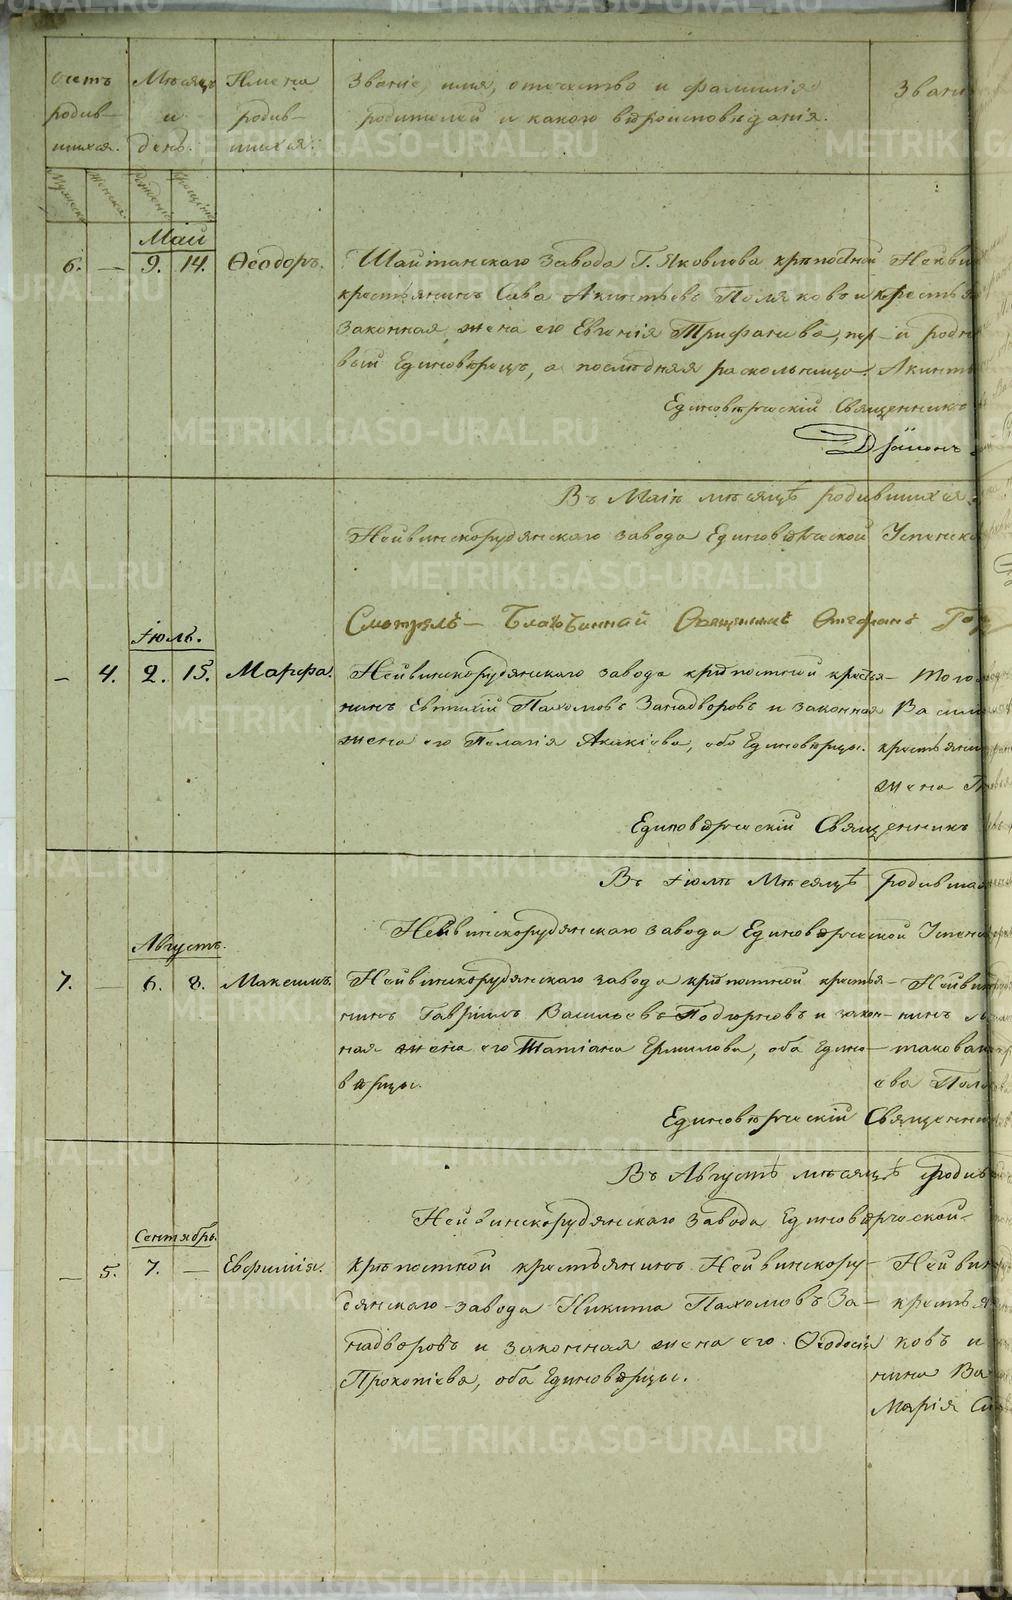 Счетъ родив-шихся.
Мѣсяцъ и день.
Имена родив-шихся.
Званіе, имя, отчество и фамилія
родителей и какого вѣроисповѣданія.
Звані
Мужеска
Женска
Рожденія
Крещенія
Май
6. — 9. 14. Ѳеодоръ. Шайтанскаго завода Г. Яковлева крѣпостной
крестьянинъ Сава Акинтьевъ Поляковъ и
законная жена его Евгенія Трифанова, пер-
вый Единовѣрецъ, а послѣдняя раскольница.
Нейви
крестья
и родн
Акинть
Единовѣрческій Священникъ
Въ Маіѣ мѣсяцѣ родившихся
Нейвинскорудянскаго завода Единовѣрческой Успенско
Смотрѣлъ — Благочинный Священникъ Стефанъ
Іюль.
— 4. 2. 15. Марѳа. Нейвинскорудянскаго завода крѣпостной крестья-
нинъ Евтихій Пахомовъ Занадворовъ и законная
жена его Пелагія Акакіева, оба Единовѣрцы.
Того
Васил
крестьяни
жена
Единовѣрческій Священникъ
Въ Іюлѣ Мѣсяцѣ родивша
Нейвинскорудянскаго завода Единовѣрческой Успенс
Августъ.
7. — 6. 8. Максимъ. Нейвинскорудянскаго завода крѣпостной крестья-
нинъ Гавріилъ Васильевъ Подгорновъ и закон-
ная жена его Татіана Ермилова, оба Едино-
вѣрцы.
Нейвин
нинъ
таковаго
ева Пол
Единовѣрческій Священни
Въ Августѣ мѣсяцѣ родив
Нейвинскорудянскаго завода Единовѣрческой
Сентябрь.
— 5. 7. — Евфимія. Крѣпостной крестьянинъ Нейвинскору-
дянскаго завода Никита Пахомовъ За-
надворовъ и законная жена его Ѳеодосія
Прокопіева, оба Единовѣрцы.
Нейвин
крестья
ковъ и
нина Ва
Марія Си
METRIKI.GASO-URAL.RU